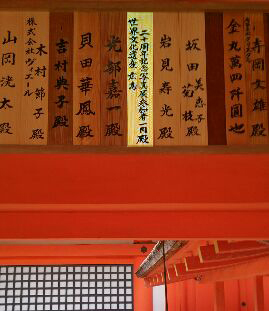 寿岡文雄殿
金九萬四阡圓也
坂田
美恵子
菊枝
殿
岩見寿光殿
二十周年記念写真展参加者一同殿
世界文化遺産
光部嘉一殿
貝田華鳳殿
吉村典子殿
木村節子殿
株式会社ヴィエール
山岡洸大殿